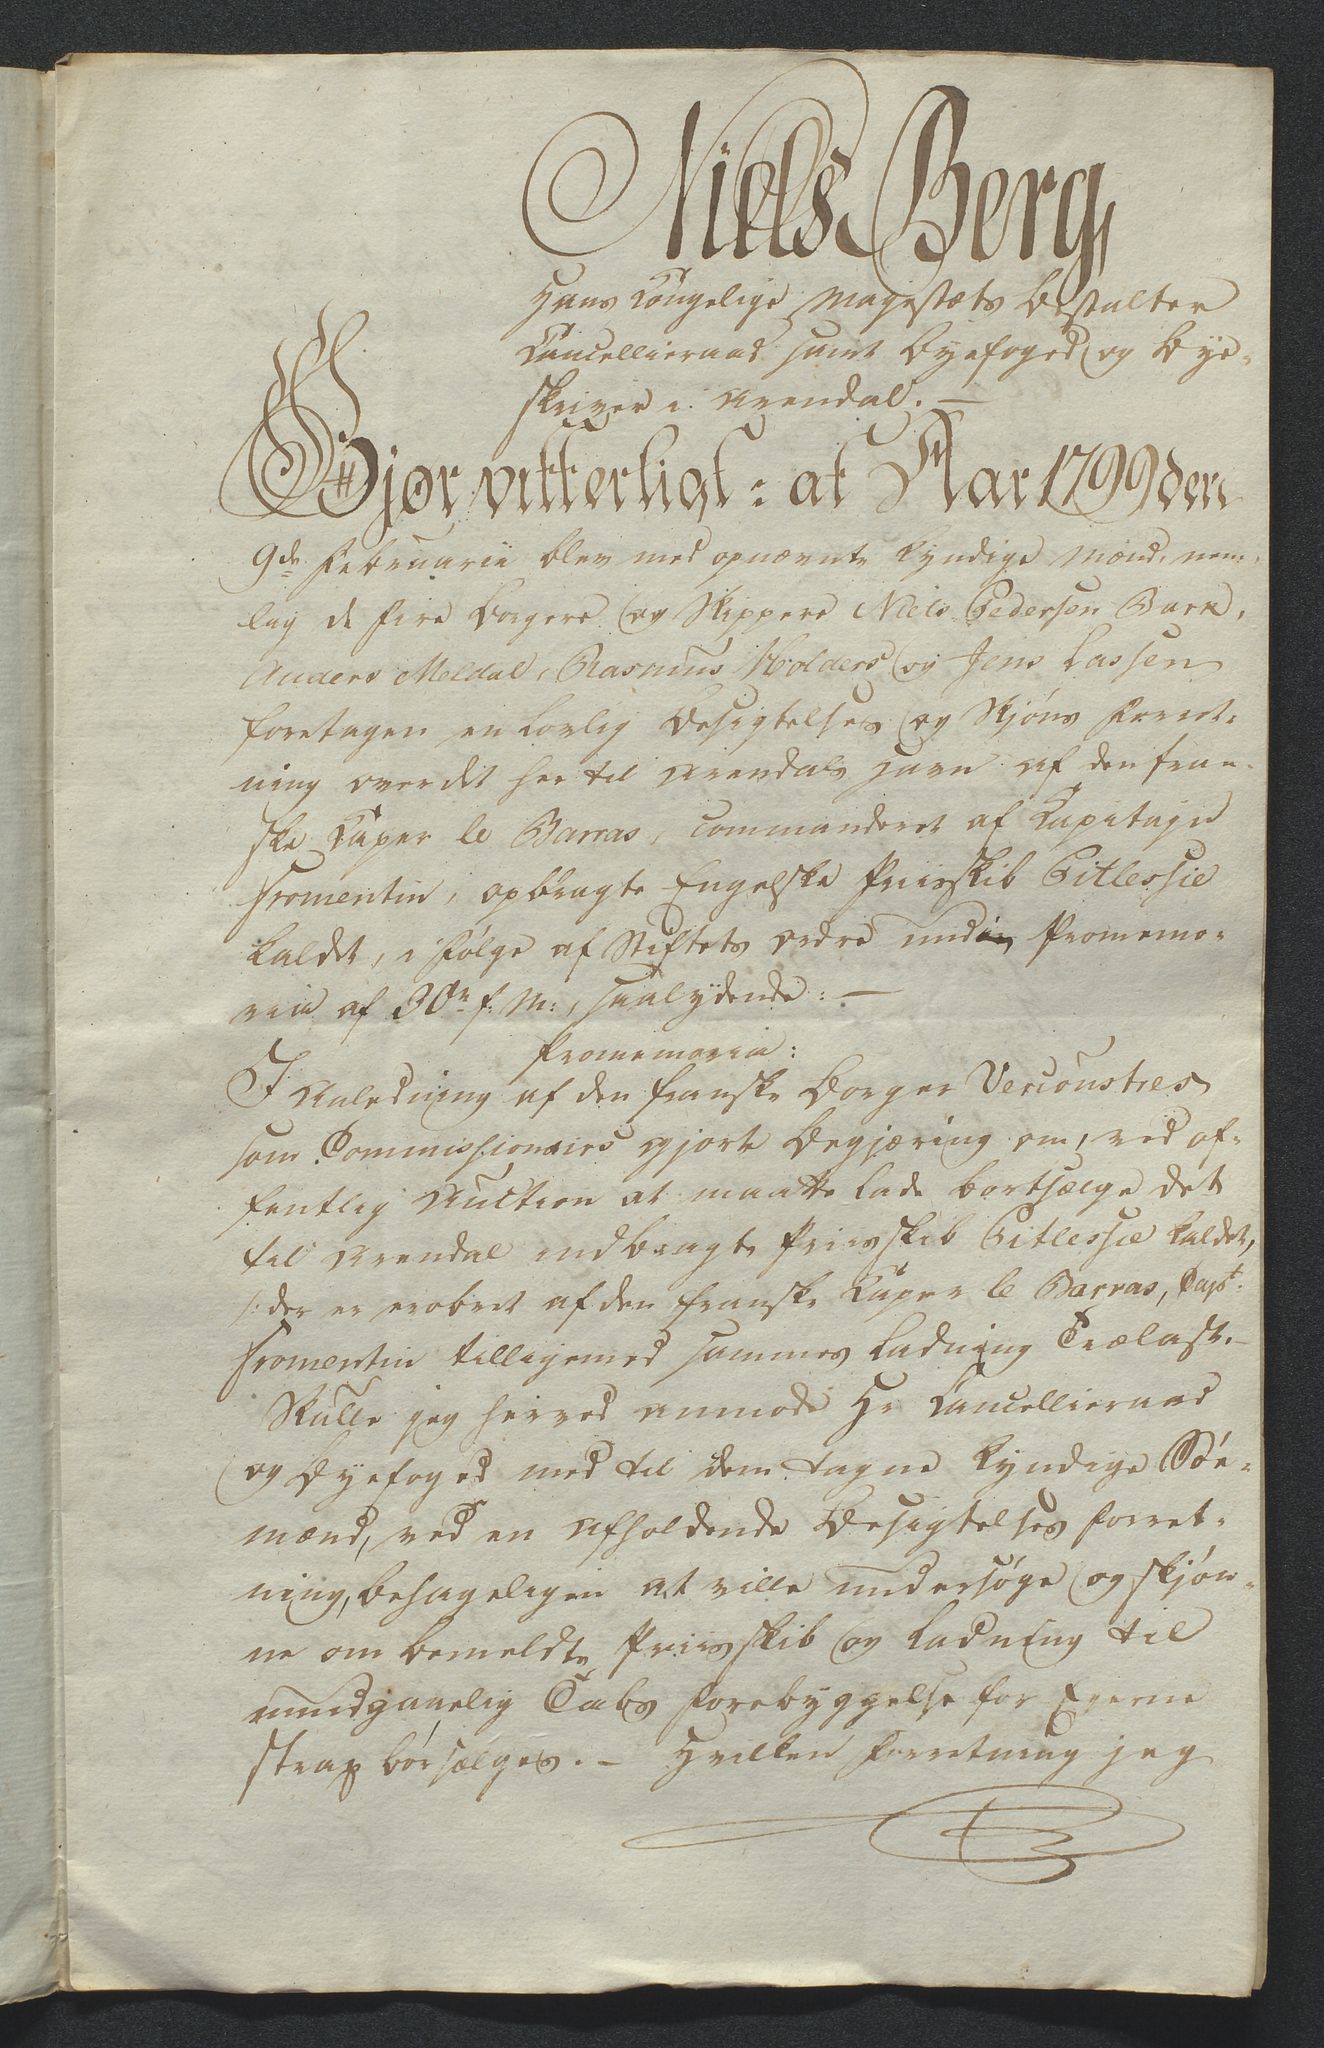 Niels Berg,
Hans Kongelige Majestæts Bestalter
Cancellieraad samt Byefoged og Bye-
skriver i Arendal. —
Gjør vitterligt: at Aar 1799 den
9de Februarii blev med opnævnte kyndige Mænd, nem-
lig de fire Borgere og Skippere Niels Pedersen Barn,
Anders Meldal, Rasmus Holders og Jens Lassen
foretagen en Lovlig Besigtelses og Skjøns Forret-
ning over det her til Arendals Havn af den fran-
ske Kaper le Barras, commanderet af Kapitajn
Fromentin, opbragte Engelske Priisskib Pitlessie
kaldet, i Følge af Stiftets Ordre under Promemo-
ria af 30te f: M:, saalydende: —
Promemoria:
I Anledning af den franske Borger Vercoustres
som Commissionairs gjorte Begjæring om, ved of-
fentlig Auction at maatte lade bortsælge det
til Arendal indbragte Priisskib Pitlessie kaldet,
/: der er erobret af den franske Kaper le Barras, Capt:
Fromentin tilligemed sammes Ladning Trælast. —
Skulle jeg herved anmode Hr Cancellieraad
og Byefoged med til dem tagne kyndige Søe-
mænd, ved en afholdende Besigtelses Forret-
ning, behageligen at ville undersøge og skjøn-
ne om bemeldte Priisskib og Ladning til
uundgaaelig Tabs Forebyggelse for Eyerne
strax bør sælges. — Hvilken Forretning jeg